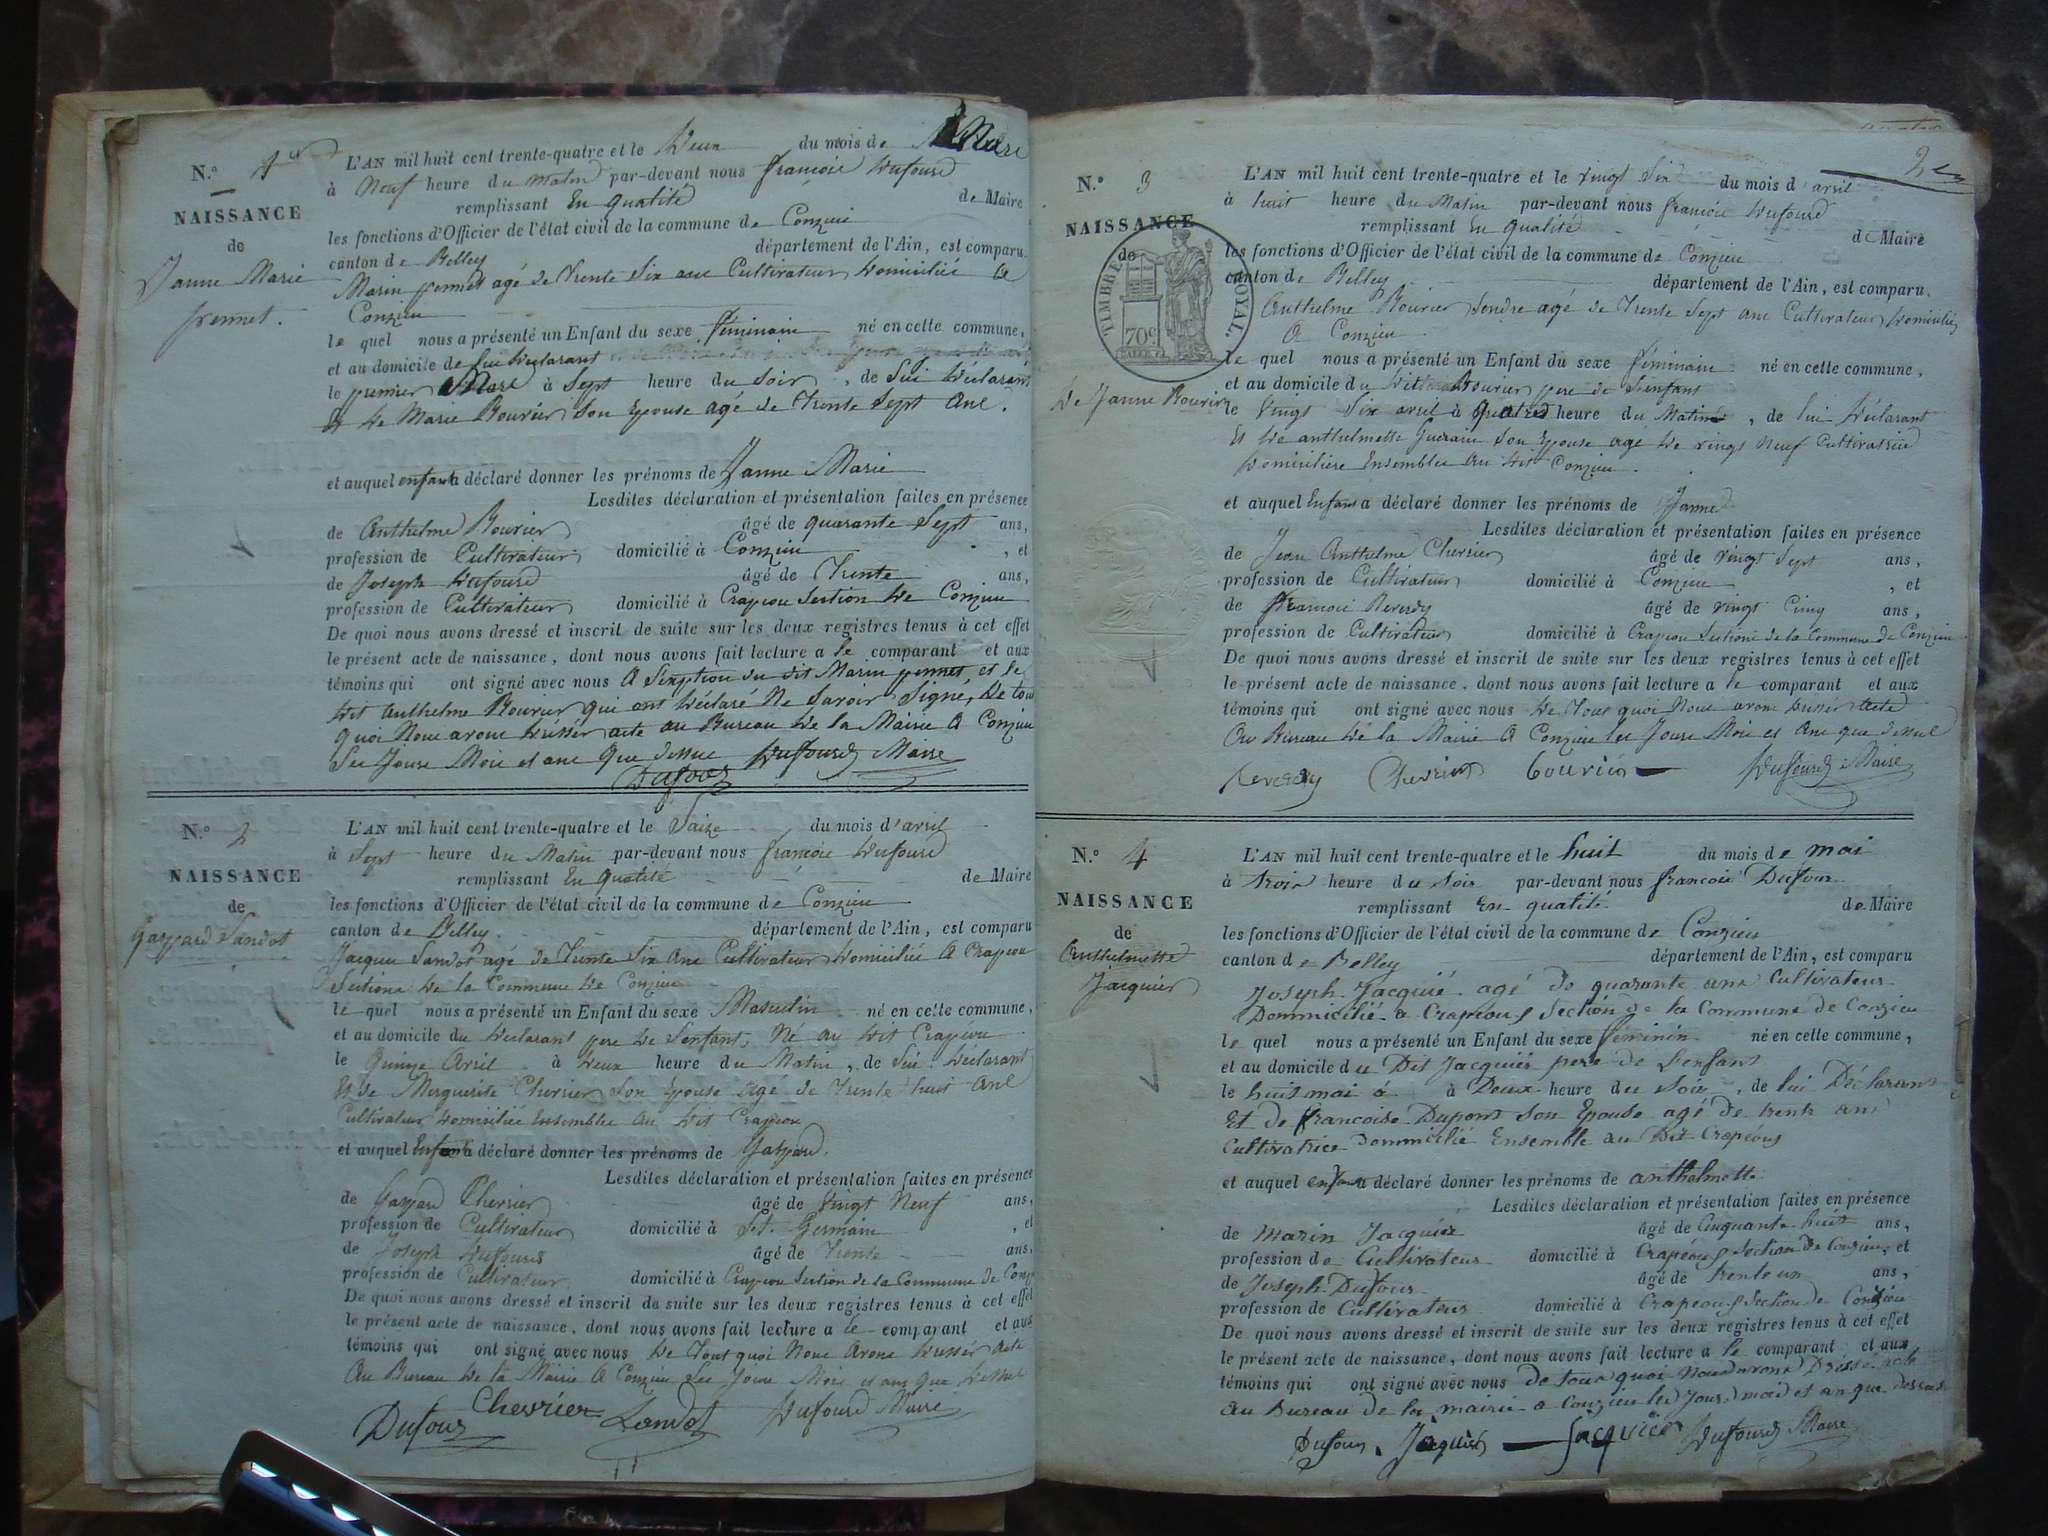 N.° 1er
NAISSANCE
de
Janne Marie
pennet.
L'AN mil huit cent trente-quatre et le Deux du mois de Mare
à Neuf heure du matin par-devant nous françoie Dufourd
remplissant En qualité de Maire
les fonctions d'Officier de l'état civil de la commune de Conzieu
canton de Belley département de l'Ain, est comparu
Marin pennet agé de trente Six ane Cultivateur Domicilié a
Conzieu
le quel nous a présenté un Enfant du sexe féminain né en cette commune,
et au domicile de lui Déclarant
le premier Mare à Sept heure du Soir, de Lui Déclarant
Et De Marie Bouvier Son Epouse agé de Trente Sept Ane.
et auquel enfant a déclaré donner les prénoms de Janne Marie
Lesdites déclaration et présentation faites en présence
de Anthelme Bouvier âgé de quarante Sept ans,
profession de Cultivateur domicilié à Conzieu, et
de Joseph Dufourd âgé de Trente ans,
profession de Cultivateur domicilié à Crapeou Section De Conzieu
De quoi nous avons dressé et inscrit de suite sur les deux registres tenus à cet effet
le présent acte de naissance, dont nous avons fait lecture a le comparant et aux
témoins qui ont signé avec nous A Séxption du dit Marin pennet et le
Dit Anthelme Bouvier qui ont Déclaré Ne Savoir Signé, De tou
quoi Noue avone Dressér acte au Bureau De la Mairie A Conzieu
Les Joure Moie et ane Que dessue Dufourd Maire
Dufour
N.° 2
NAISSANCE
de
Gaspard Landot
L'AN mil huit cent trente-quatre et le Saize du mois d'avril
à Sept heure du Matin par-devant nous françoie Dufourd
remplissant En Qualité de Maire
les fonctions d'Officier de l'état civil de la commune de Conzieu
canton de Belley département de l'Ain, est comparu
Jacque Landot agé de Trente Six Ane Cultivateur Domicilié A Crapeou
Sectione De la Commune De Conzieu
le quel nous a présenté un Enfant du sexe Masculin né en cette commune,
et au domicile du Déclarant pere De Lenfant, Né au Dit Crapeou
le Quinze Avril à Deux heure du Matin, de Lui Déclarant
Et de Marguerite Chevrier Son Epouse agé de Trente huit Ane
Cultivateur Domicilié Ensemble Au Dit Crapeou
et auquel Enfant a déclaré donner les prénoms de Gaspard.
Lesdites déclaration et présentation faites en présence
de Gaspard Chevrier âgé de Vingt Neuf ans,
profession de Cultivateur domicilié à St. Germain, et
de Joseph Dufourd âgé de Trente ans,
profession de Cultivateur domicilié à Crapeou Section de la Commune de Conz
De quoi nous avons dressé et inscrit de suite sur les deux registres tenus à cet effet
le présent acte de naissance, dont nous avons fait lecture a le comparant et aux
témoins qui ont signé avec nous De Tout quoi Noue Avone Dressér Acte
Au Bureau De la Mairie A Conzieu Les Joure Moie et ane que Dessue
Dufour Chevrier Landot Dufourd Maire
2
N.° 3
NAISSANCE
de
TIMBRE ROYAL
70c
De Janne Bouvier
L'AN mil huit cent trente-quatre et le vingt Six du mois d'avril
à huit heure du Matin par-devant nous françoie Dufourd
remplissant En Qualité de Maire
les fonctions d'Officier de l'état civil de la commune de Conzieu
canton de Belley département de l'Ain, est comparu
Anthelme Bouvier Gendre agé de Trente Sept ane Cultivateur Domicilié
A Conzieu
le quel nous a présenté un Enfant du sexe féminain né en cette commune,
et au domicile du Dit Bouvier pere de Lenfant
le Vingt Six avril à Quatre heure du Matin, de lui Déclarant
Et De anthelmette Guerain Son Epouse agé De vingt Neuf Cultivatrice
Domiciliere Ensemblee Au Dit Conzieu.
et auquel Enfant a déclaré donner les prénoms de Janne
Lesdites déclaration et présentation faites en présence
de Jean Anthelme Chevrier âgé de vingt Sept ans,
profession de Cultivateur domicilié à Conzieu, et
de françoie Reverdy âgé de vingt Cinq ans,
profession de Cultivateur domicilié à Crapeou Sectioni de la Commune de Conzieu
De quoi nous avons dressé et inscrit de suite sur les deux registres tenus à cet effet
le présent acte de naissance, dont nous avons fait lecture a le comparant et aux
témoins qui ont signé avec nous De Tout quoi Noue avone Dressér Acte
Au Bureau De la Mairie A Conzieu les Joure Moie et Ane que Dessue
Reverdy Chevrier bouvier Dufourd Maire
N.° 4
NAISSANCE
de
Anthelmette
Jacquier
L'AN mil huit cent trente-quatre et le huit du mois de mai
à trois heure du Soir par-devant nous francois Dufour
remplissant En qualité de Maire
les fonctions d'Officier de l'état civil de la commune de Conzieu
canton de Belley département de l'Ain, est comparu
Joseph Jacquié agé de quarante ans Cultivateur
Dommicilié a Crapéoux Section de la Commune de Conzieu
le quel nous a présenté un Enfant du sexe féminin né en cette commune,
et au domicile du Dit Jacquier pere de Lenfant
le huit mai à à Deux heure du Soir, de lui Déclarant
Et de francoise Dupont Son Epouse agé de trente ans
Cultivatrice Dommicilié Ensemble au Dit Crapéoux
et auquel enfant a déclaré donner les prénoms de anthelmette
Lesdites déclaration et présentation faites en présence
de Marin Jacquier âgé de Cinquante huit ans,
profession de Cultivateur domicilié à Crapéoux Section de Conzieu, et
de Joseph Dufour âgé de trente un ans,
profession de Cultivateur domicilié à Crapeoux Section de Conzieu
De quoi nous avons dressé et inscrit de suite sur les deux registres tenus à cet effet
le présent acte de naissance, dont nous avons fait lecture a le comparant et aux
témoins qui ont signé avec nous de tous quoi nous avons Dréssé acte
au Bureau de la mairie a Conzieu les Jours mois et an que dessus
Dufour Jacquier Jacquier Dufourd Maire